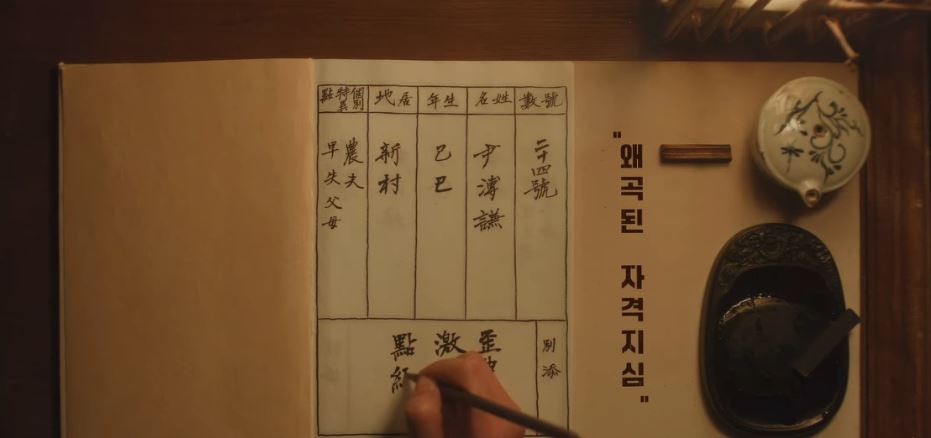 號數
二十四號
姓名
尹溥謙
生年
己巳
居地
新村
個別
特異
點
農夫
早失父母
別添
歪
激
點紅
"왜곡된 자격지심"